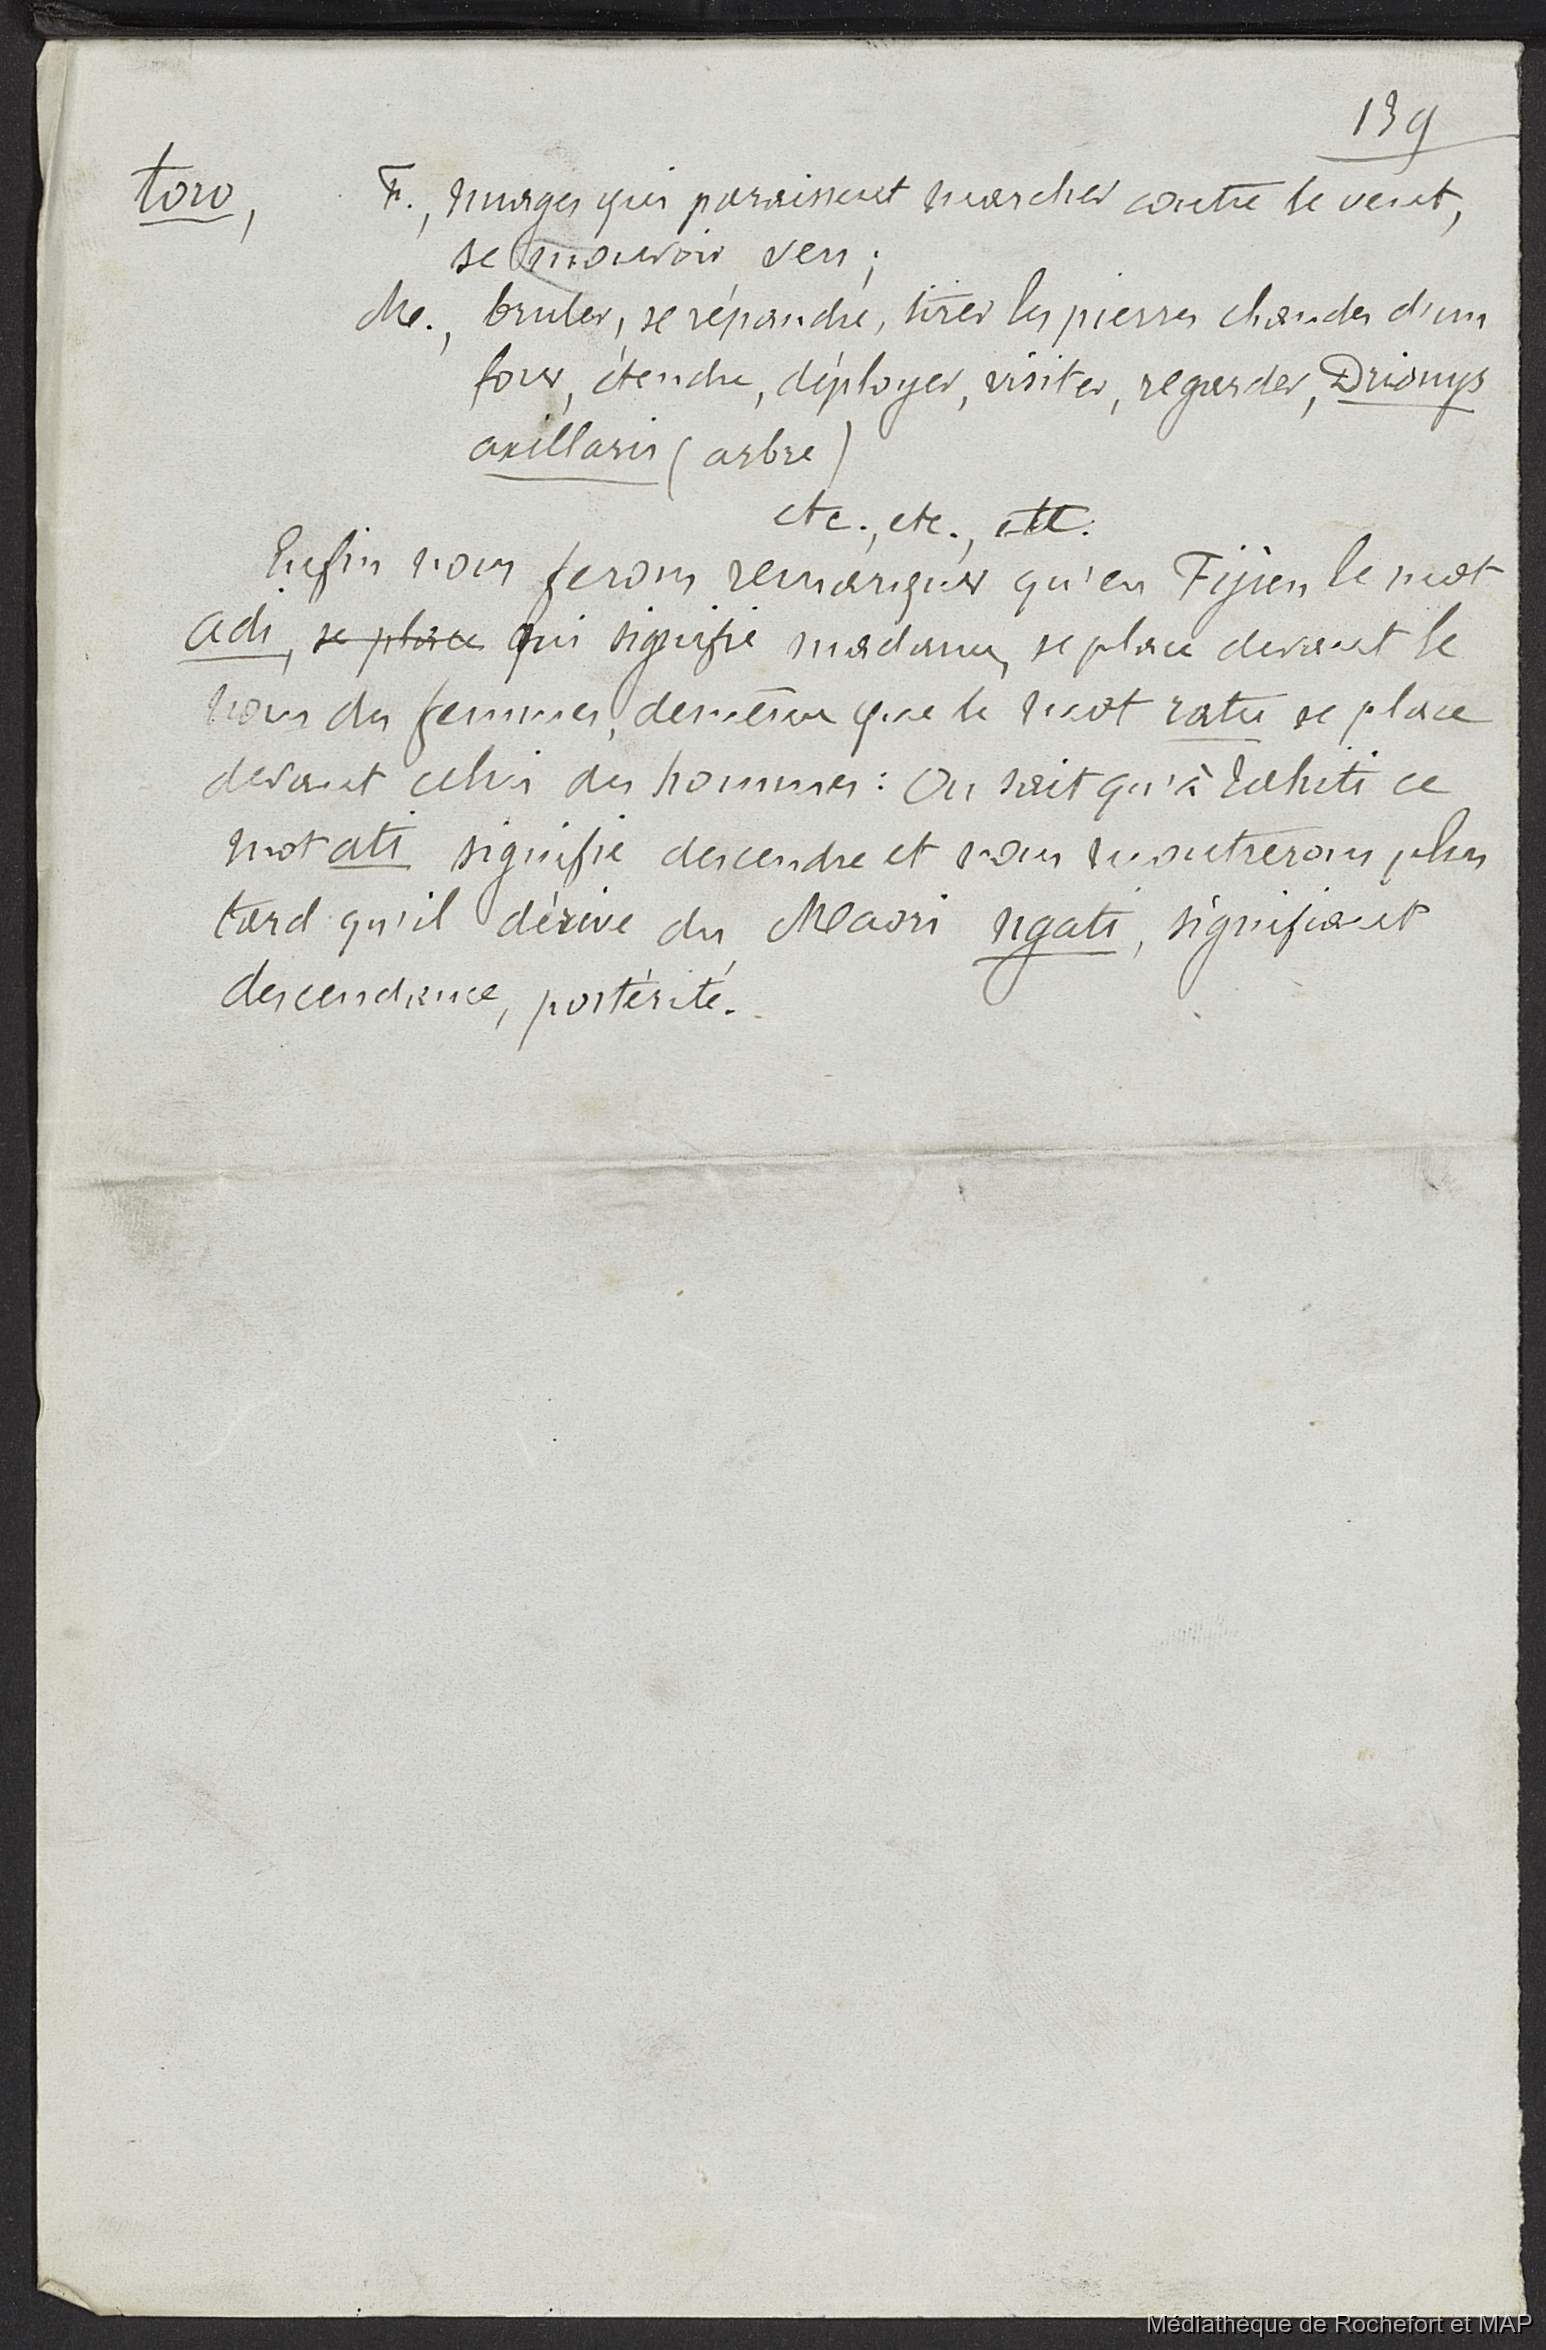 139
toro, F., nuages qui paraissent marcher contre le vent,
se mouvoir vers;
Me., bruler, se répandre, tirer les pierres chaudes d'un
four, étendre, déployer, visiter, regarder, Drionys
axillaris (arbre)
etc., etc., etc.
Enfin nous ferons remarquer qu'en Fijien le mot
adi, se place qui signifie madame, se place devant le
nom des femmes, de même que le mot ratu se place
devant celui des hommes: On sait qu'à Tahiti ce
mot ati signifie descendre et nous montrerons plus
tard qu'il dérive du Maori ngati, signifiant
descendance, postérité.
Médiathèque de Rochefort et MAP